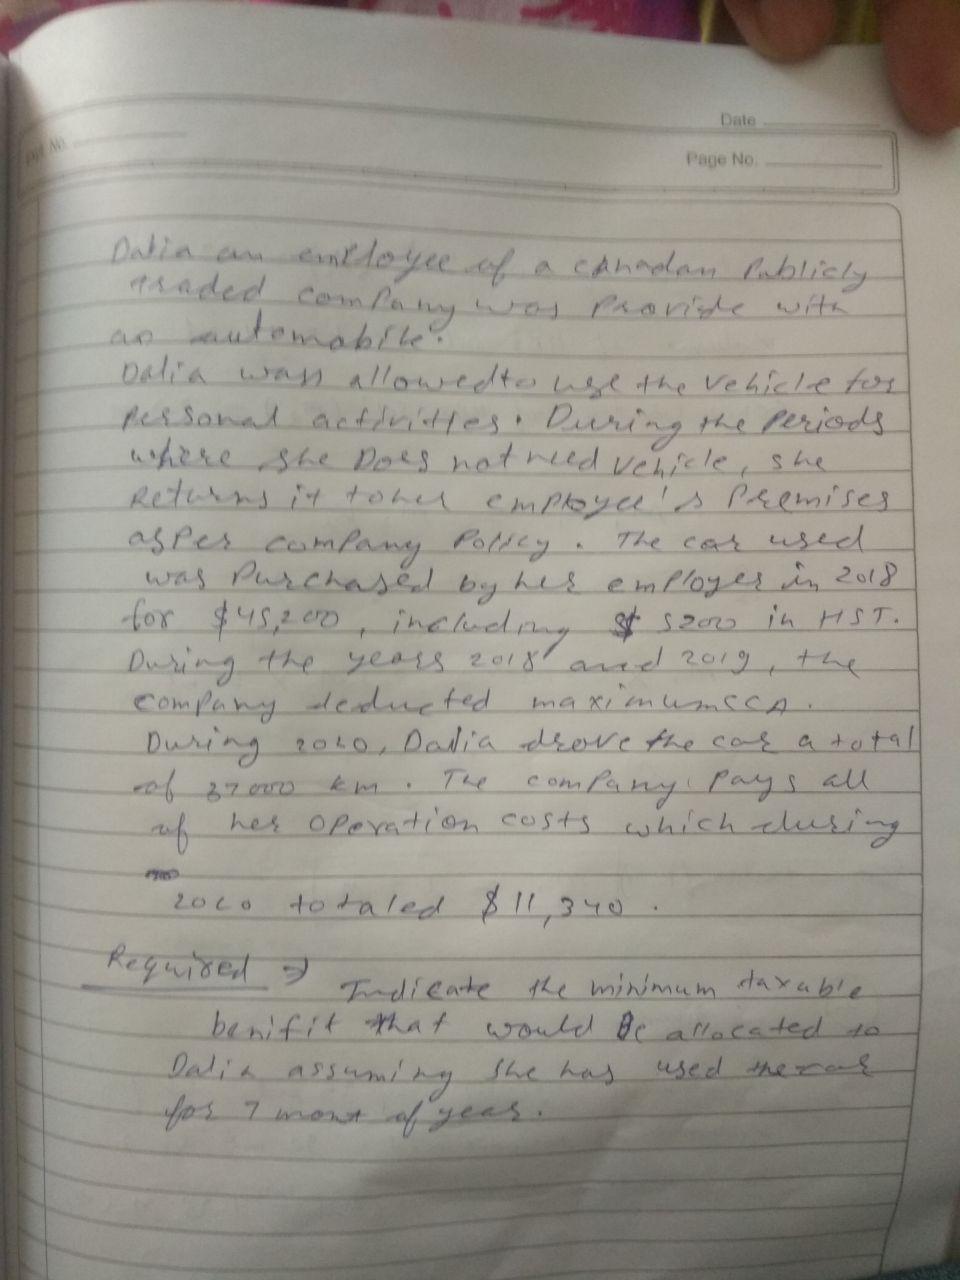 Date
Page No.
Dalia an employee of a canadan Publicly
traded company was Provide with
an automobile.
Dalia wass allowed to use the vehicle for
Personal activities. During the Periods
where she Does not need vehicle, she
Returns it to her employee's Premises
as Per company Policy. The car used
was Purchased by her employer in 2018
for $45,200, including $ 5200 in HST.
During the years 2018 and 2019, the
company deducted maximum CCA.
During 2020, Dalia drove the car a total
of 37000 km. The company Pays all
of her operation costs which during
2020 totaled $11,340.
Required ⇒
Indicate the minimum taxable
benifit that would Be allocated to
Dalia assuming she has used the car
for 7 mont of year.